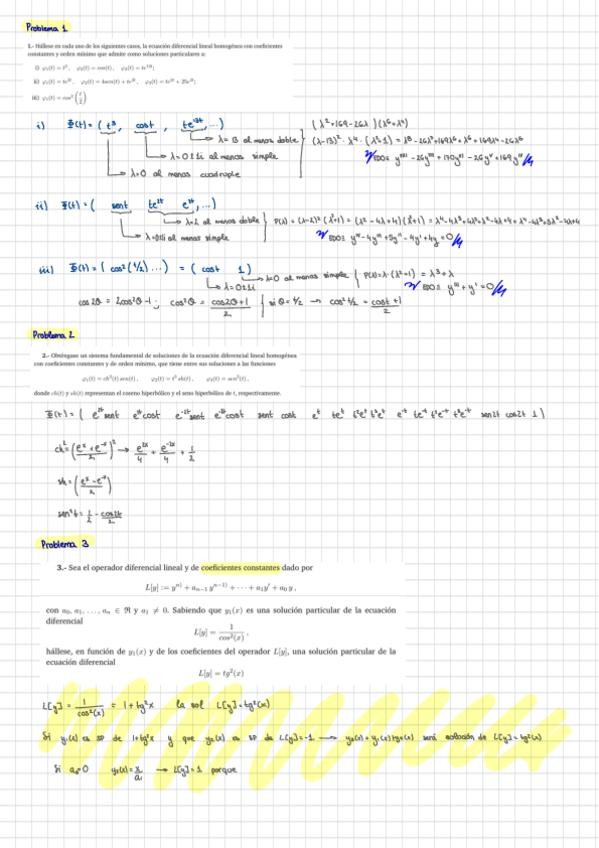 Problema 1
1.- Hállese en cada uno de los siguientes casos, la ecuación diferencial lineal homogénea con coeficientes
constantes y orden mínimo que admite como soluciones particulares a:
i) φ₁(t) = t³, φ₂(t) = cos(t), φ₃(t) = te^13t;
iii) φ₁(t) = cos²(t/2)
i) Φ(t) = ( t³, cost, te^13t, ...)
(λ²+169-26λ)(λ⁶+λ⁴)
λ = 13 al menos doble
λ = 0±1i al menos simple
λ=0 al menos cuadruple
ii) Φ(t) = ( sent te^2t e^2t, ...)
λ=2 al menos doble
λ=0±1i al menos simple
iii) Φ(t) = ( cos²(t/2) ...) = ( cost 1)
λ=0 al menos simple
P(λ)= λ·(λ²+1) = λ³+λ
λ=0±1i
EDO≡ y''' + y' = 0
cos2θ = 2cos²θ-1; cos²θ = cos2θ+1/2
si θ = t/2 → cos² t/2 = cost+1/2
Problema 2
2.- Obténgase un sistema fundamental de soluciones de la ecuación diferencial lineal homogénea
con coeficientes constantes y de orden mínimo, que tiene entre sus soluciones a las funciones
φ₁(t) = ch²(t) sen(t), φ₂(t) = t³ sh(t), φ₃(t) = sen²(t),
donde ch(t) y sh(t) representan el coseno hiperbólico y el seno hiperbólico de t, respectivamente.
Φ(t) = ( e^2t sent e^2t cost e^-2t sent e^-2t cost sent cost e^t te^t t²e^t t³e^t e^-t te^-t t²e^-t t³e^-t sen2t cos2t 1 )
ch² = (e^x + e^-x / 2)² → e^2x/4 + e^-2x/4 + 1/2
sh = (e^x - e^-x / 2)
sen²t = 1/2 - cos2t/2
Problema 3
3.- Sea el operador diferencial lineal y de coeficientes constantes dado por
L[y] := y^n) + a_n-1 y^n-1) + ··· + a₁y' + a₀ y,
con a₀, a₁, ..., a_n ∈ ℜ y a₁ ≠ 0. Sabiendo que y₁(x) es una solución particular de la ecuación
diferencial
L[y] = 1/cos²(x),
hállese, en función de y₁(x) y de los coeficientes del operador L[y], una solución particular de la
ecuación diferencial
L[y] = tg²(x)
L[y] = 1/cos²(x) = 1+tg²x la sol L[y]=tg²(x)
Si y₁(x) es SP de 1+tg²x y que y₂(x) es SP de L[y]=-1 → será solución de L[y]=tg²(x)
Si a₀=0 y₂(x)= x/a₁ → L[y]=1 porque